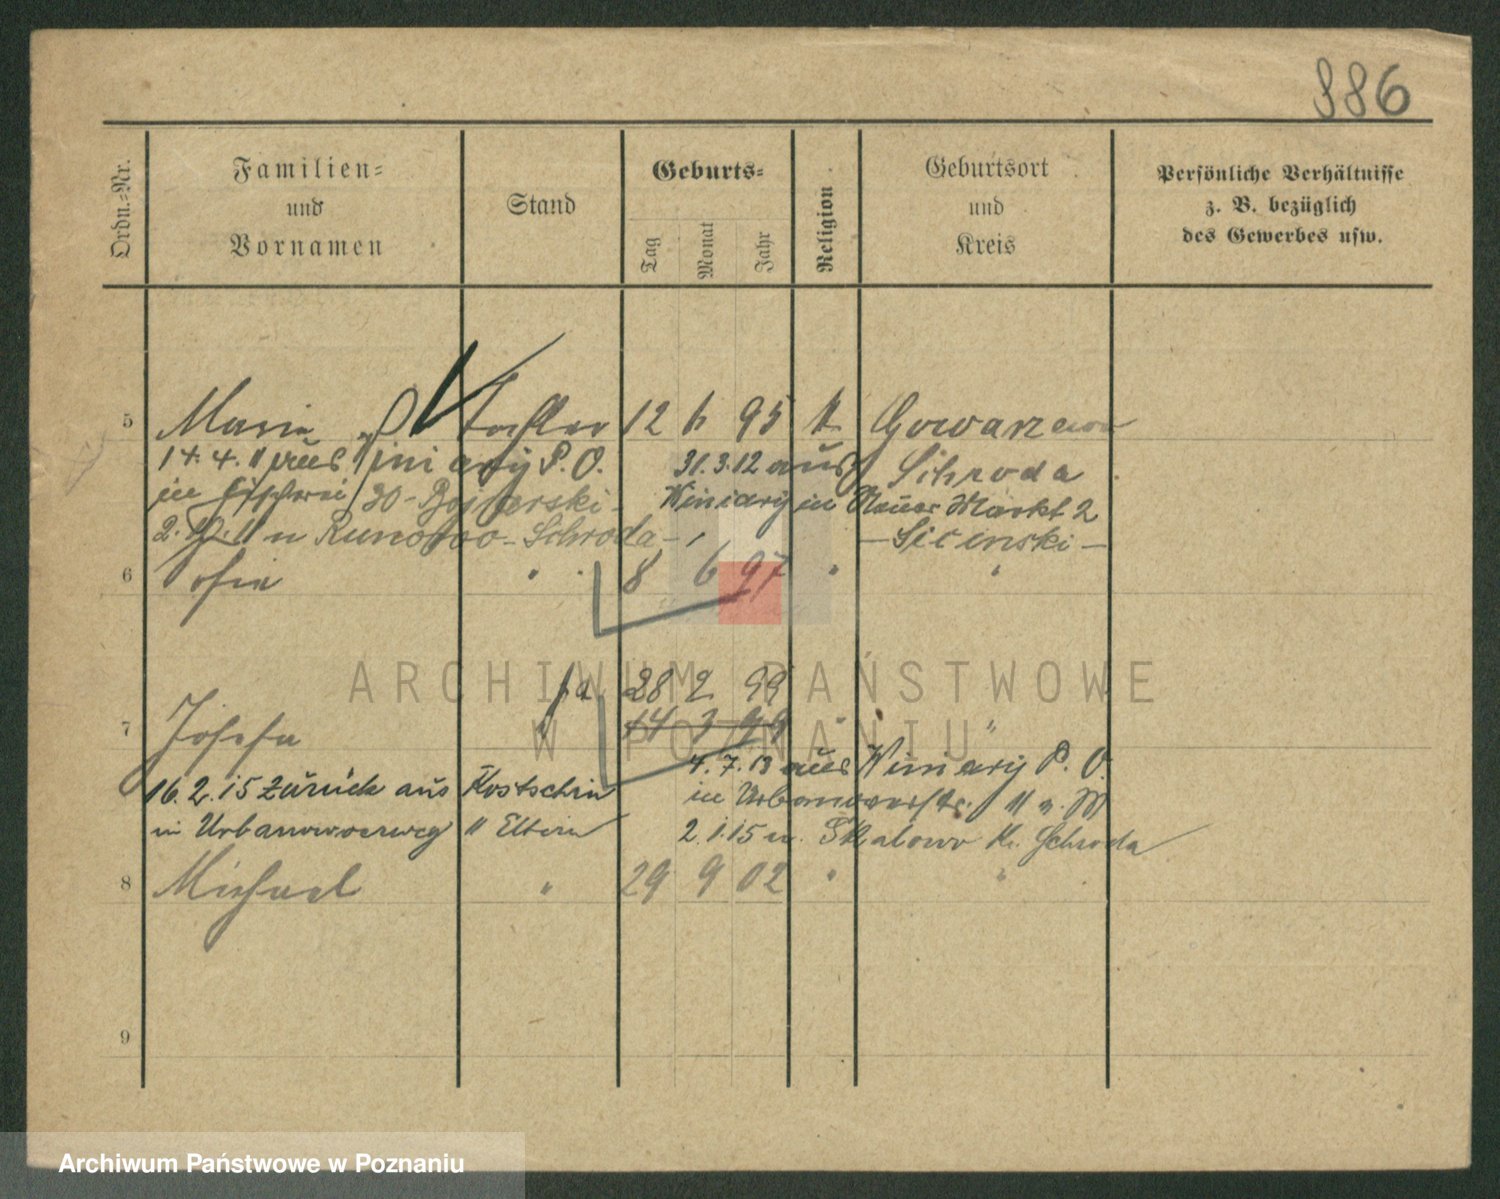 886
Ordn.-Nr.
Familien-
und
Vornamen
Stand
Geburts-
Tag
Monat
Jahr
Religion
Geburtsort
und
Kreis
Persönliche Verhältnisse
z. B. bezüglich
des Gewerbes usw.
5 Maria Tochter 12 6 95 k Gowarzewo
14. 4. 11 aus Winiary P. O. 31. 3. 12 aus Schroda
in 30 - Winiary in Neuer Markt 2
2. 11 n Runowo - Schroda - - Sicinski -
6 Sofia " 8 6 97 " "
28 2 99
7 Josefa " 14 3 99 "
4. 7. 13 aus Winiary P. O.
16. 2. 15 zurück aus Kostschin in 11 n. W
in Urbanowoerweg " Eltern 2. 1. 15 n. Skalowo Kr. Schroda
8 Michael " 29 9 02 " "
9
ARCHIWUM PAŃSTWOWE
W POZNANIU"
Archiwum Państwowe w Poznaniu